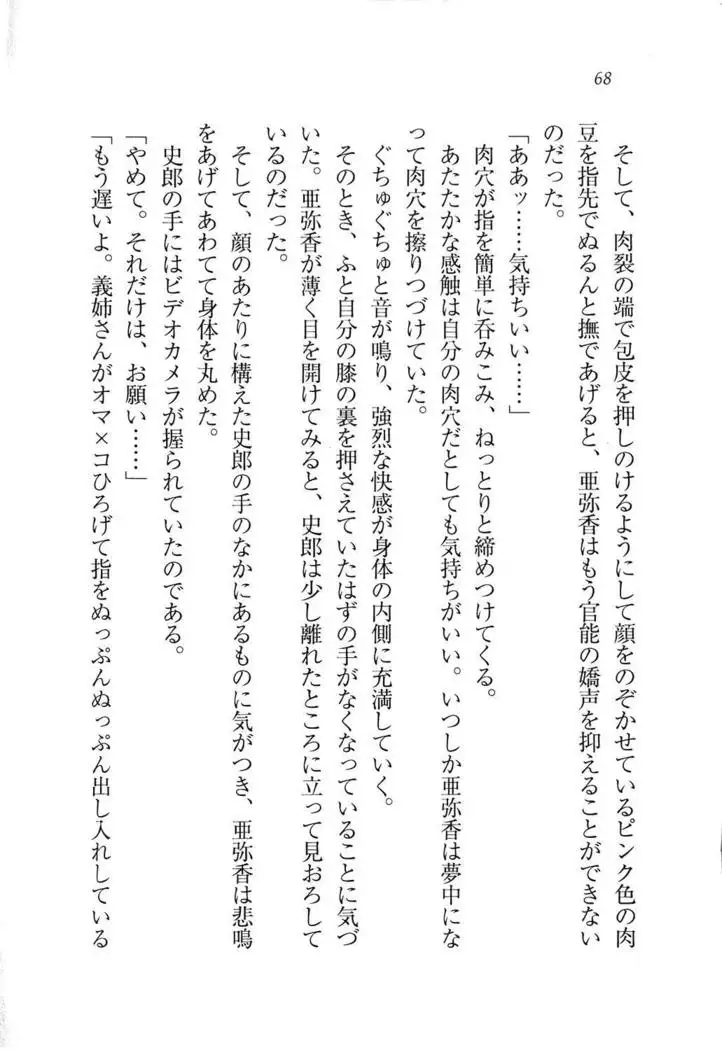 68
そして、肉裂の端で包皮を押しのけるようにして顔をのぞかせているピンク色の肉
豆を指先でぬるんと撫であげると、亜弥香はもう官能の嬌声を抑えることができない
のだった。
「ああッ……気持ちいい……」
肉穴が指を簡単に呑みこみ、ねっとりと締めつけてくる。
あたたかな感触は自分の肉穴だとしても気持ちがいい。いつしか亜弥香は夢中にな
って肉穴を擦りつづけていた。
ぐちゅぐちゅと音が鳴り、強烈な快感が身体の内側に充満していく。
そのとき、ふと自分の膝の裏を押さえていたはずの手がなくなっていることに気づ
いた。亜弥香が薄く目を開けてみると、史郎は少し離れたところに立って見おろして
いるのだった。
そして、顔のあたりに構えた史郎の手のなかにあるものに気がつき、亜弥香は悲鳴
をあげてあわてて身体を丸めた。
史郎の手にはビデオカメラが握られていたのである。
「やめて。それだけは、お願い……」
「もう遅いよ。義姉さんがオマ×コひろげて指をぬっぷんぬっぷん出し入れしている